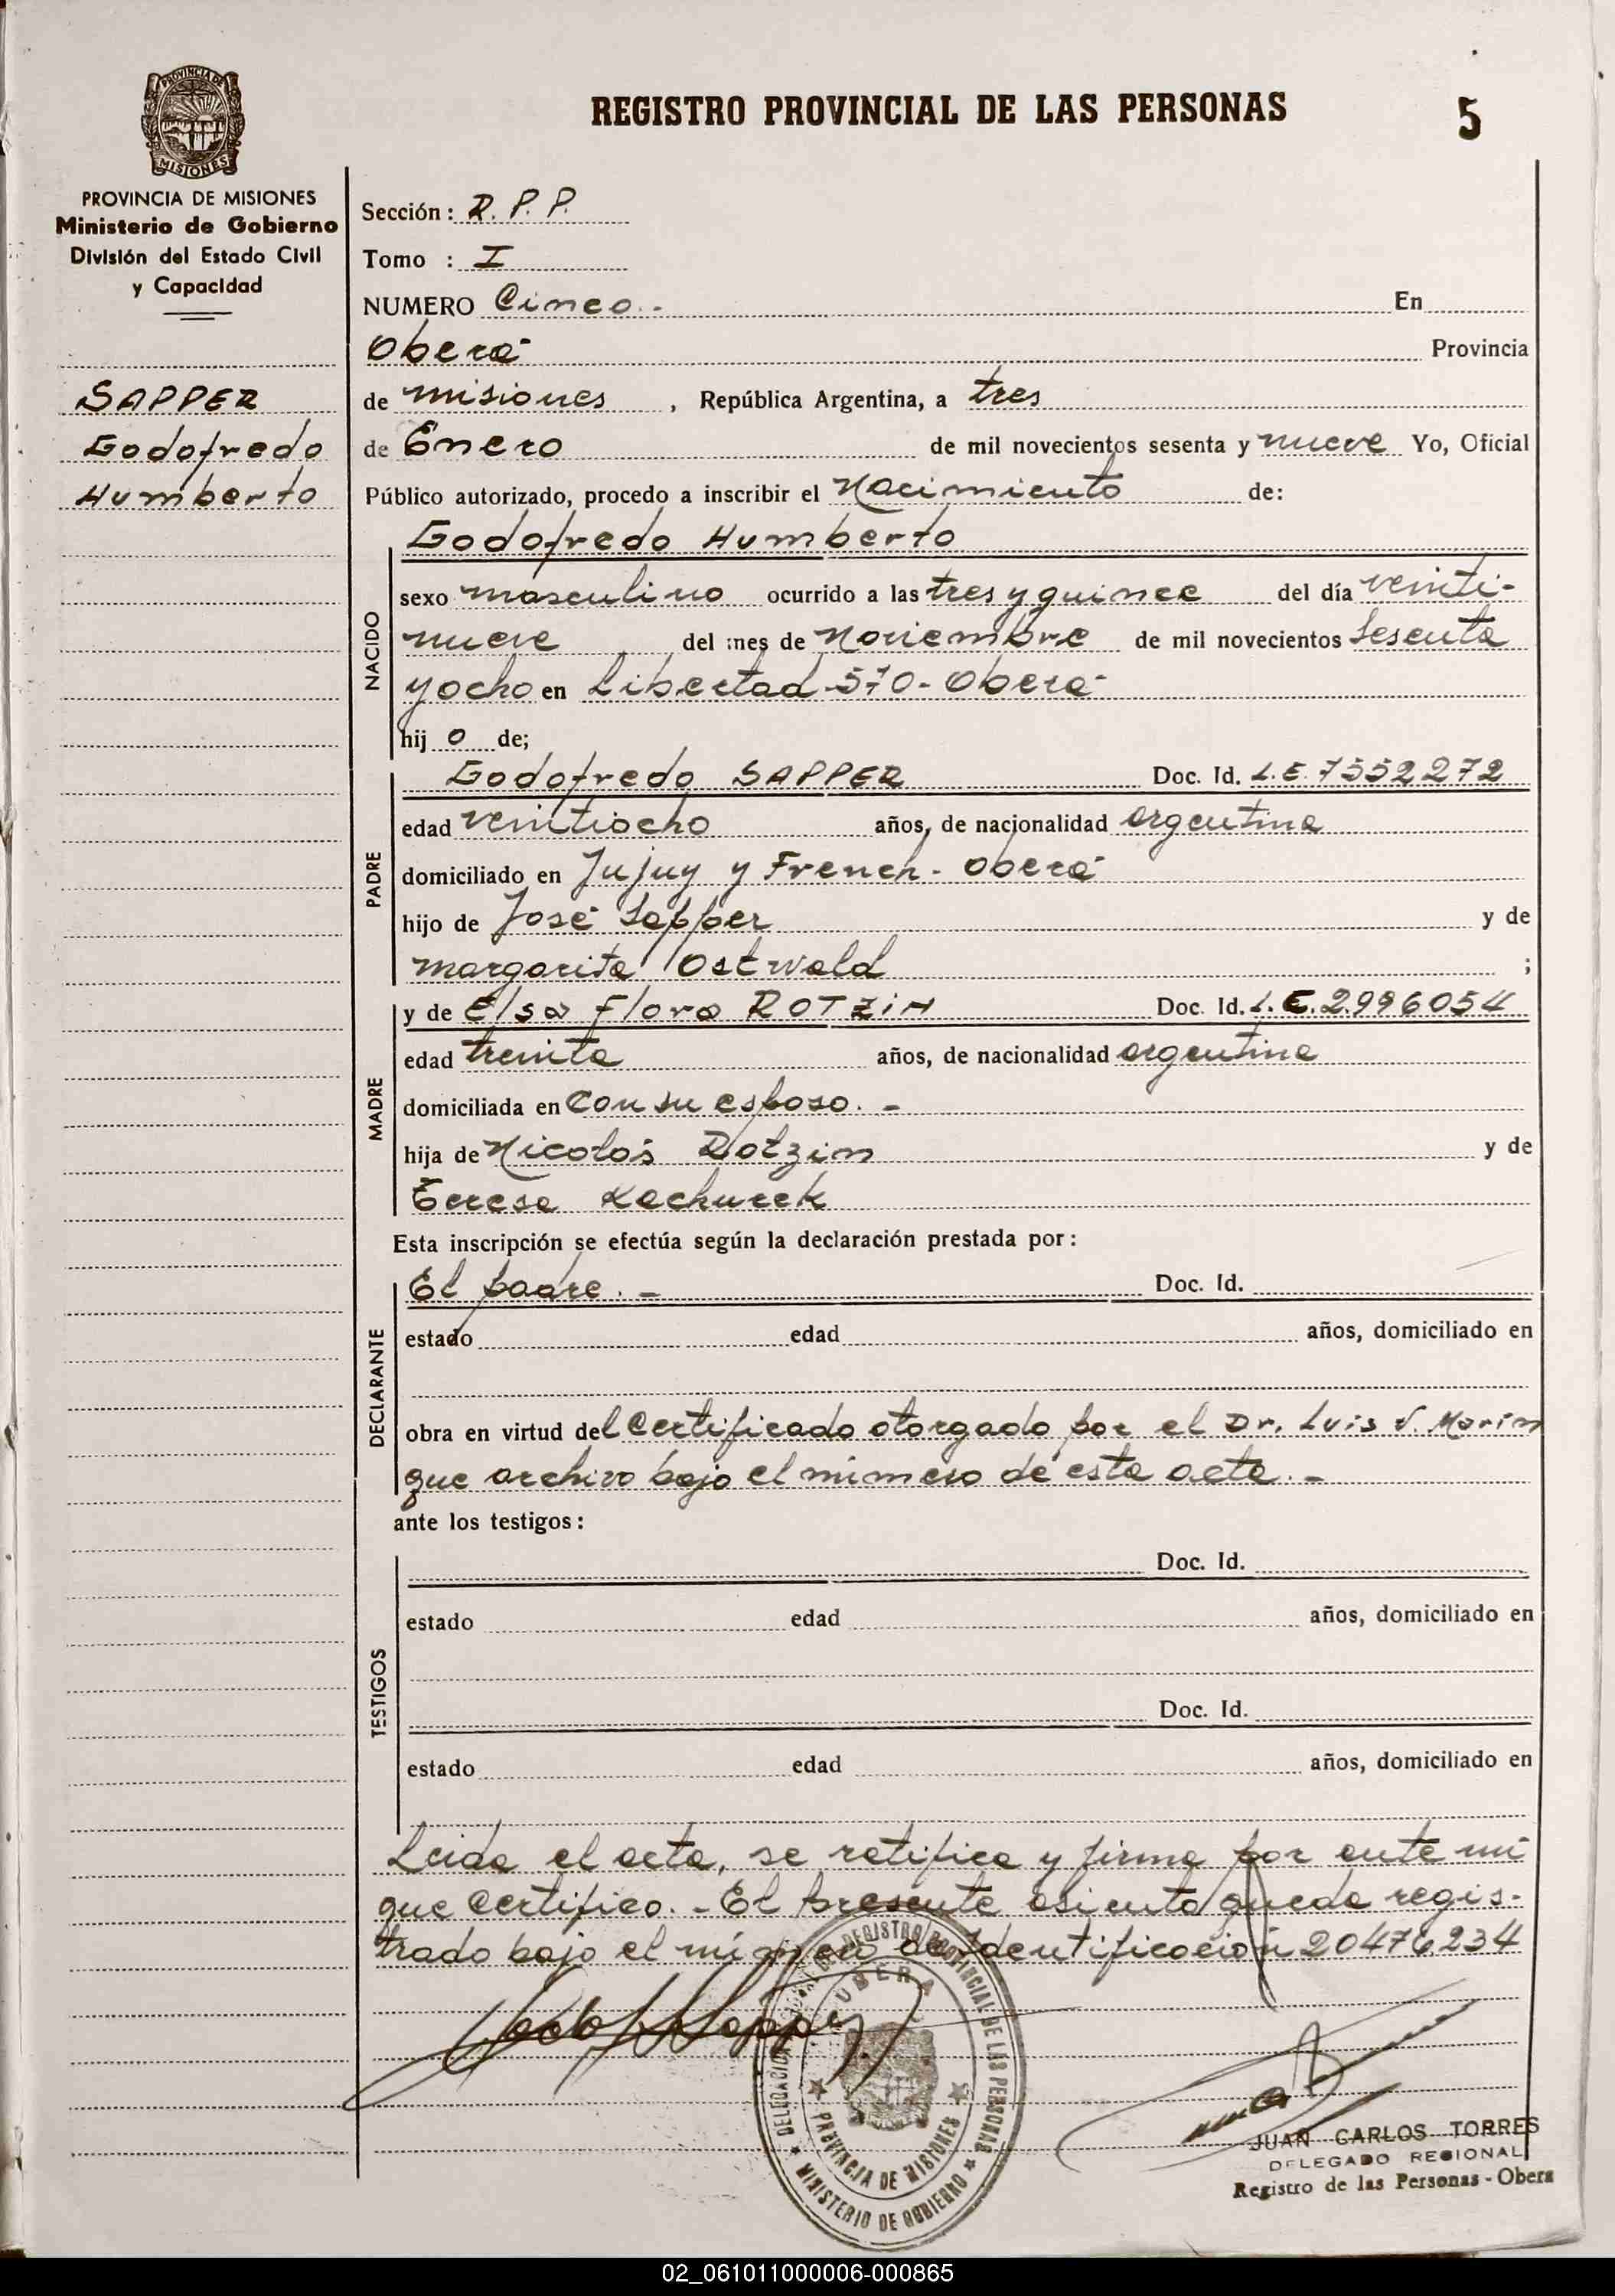 REGISTRO PROVINCIAL DE LAS PERSONAS
5
PROVINCIA DE MISIONES
PROVINCIA DE MISIONES
Ministerio de Gobierno
División del Estado Civil
y Capacidad
SAPPER
Godofredo
Humberto
Sección: R. P. P.
Tomo : I
NUMERO Cinco.- En
Oberá Provincia
de misiones, República Argentina, a tres
de Enero de mil novecientos sesenta y nueve Yo, Oficial
Público autorizado, procedo a inscribir el Nacimiento de:
NACIDO
Godofredo Humberto
sexo masculino ocurrido a las tres y quince del día veinti-
nueve del mes de Noviembre de mil novecientos Sesenta
y ocho en Libertad-570-Oberá-
hij o de;
PADRE
Godofredo SAPPER Doc. Id. L.E. 7552272
edad veintiocho años, de nacionalidad argentina
domiciliado en Jujuy y French - Oberá
hijo de José Sapper y de
margarita Ostwald ;
MADRE
y de Elsa Flora ROTZIN Doc. Id. L.C. 2.996054
edad treinta años, de nacionalidad argentina
domiciliada en con su esposo. -
hija de Nicolás Rotzin y de
Teresa Kachurek
Esta inscripción se efectúa según la declaración prestada por:
DECLARANTE
El padre. - Doc. Id.
estado edad años, domiciliado en
obra en virtud del Certificado otorgado por el Dr. Luis V. Marin
que archivo bajo el número de esta acta. -
ante los testigos:
TESTIGOS
Doc. Id.
estado edad años, domiciliado en
Doc. Id.
estado edad años, domiciliado en
Leida el acta, se ratifica y firma por ante mi
que certifico. - El presente asiento queda regis-
trado bajo el número de Identificación 20476234
DELEGACION REGISTRO PROVINCIAL DE LAS PERSONAS
OBERA
PROVINCIA DE MISIONES
MINISTERIO DE GOBIERNO
JUAN CARLOS TORRES
DELEGADO REGIONAL
Registro de las Personas - Obera
02_061011000006-000865